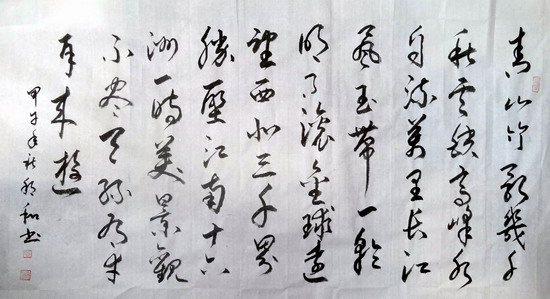 青山竹影幾千
秋雲鎖高峰水
自流萬里長江
飄玉帶一輪
明月滾金球遠
望西北三千界
勝壓江南十六
洲一時美景觀
不盡天緣有
再來遊
甲午年秋和書